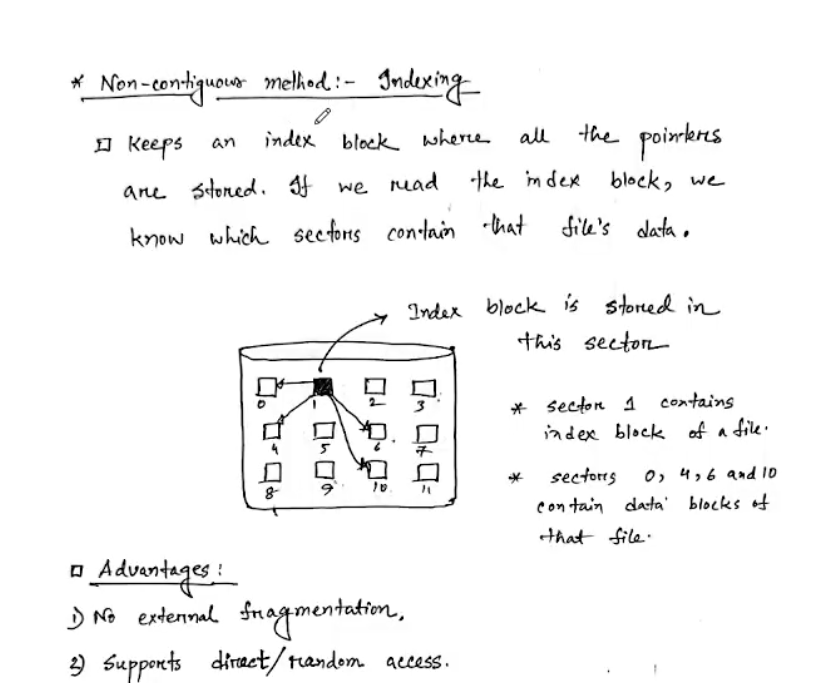 * Non-contiguous method:- Indexing
□ Keeps an index block where all the pointers
are stored. If we read the index block, we
know which sectors contain that file's data.
Index block is stored in
this sector
0 1 2 3
4 5 6 7
8 9 10 11
* sector 1 contains
index block of a file.
* sectors 0, 4, 6 and 10
contain data blocks of
that file.
□ Advantages:
1) No external fragmentation.
2) Supports direct/random access.